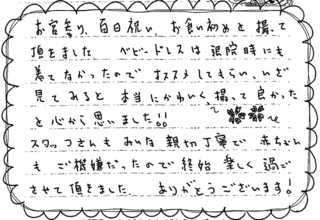 お宮参り、百日祝い、お食い初めと撮って
頂きました ベビードレスは退院時にも
着てなかったのでオススメしてもらい、いざ
見てみると本当にかわいく撮って良かった
と心から思いました!!
スタッフさんもみんな親切丁寧で赤ちゃん
もご機嫌だったので終始楽しく過ご
させて頂きました ありがとうございます!